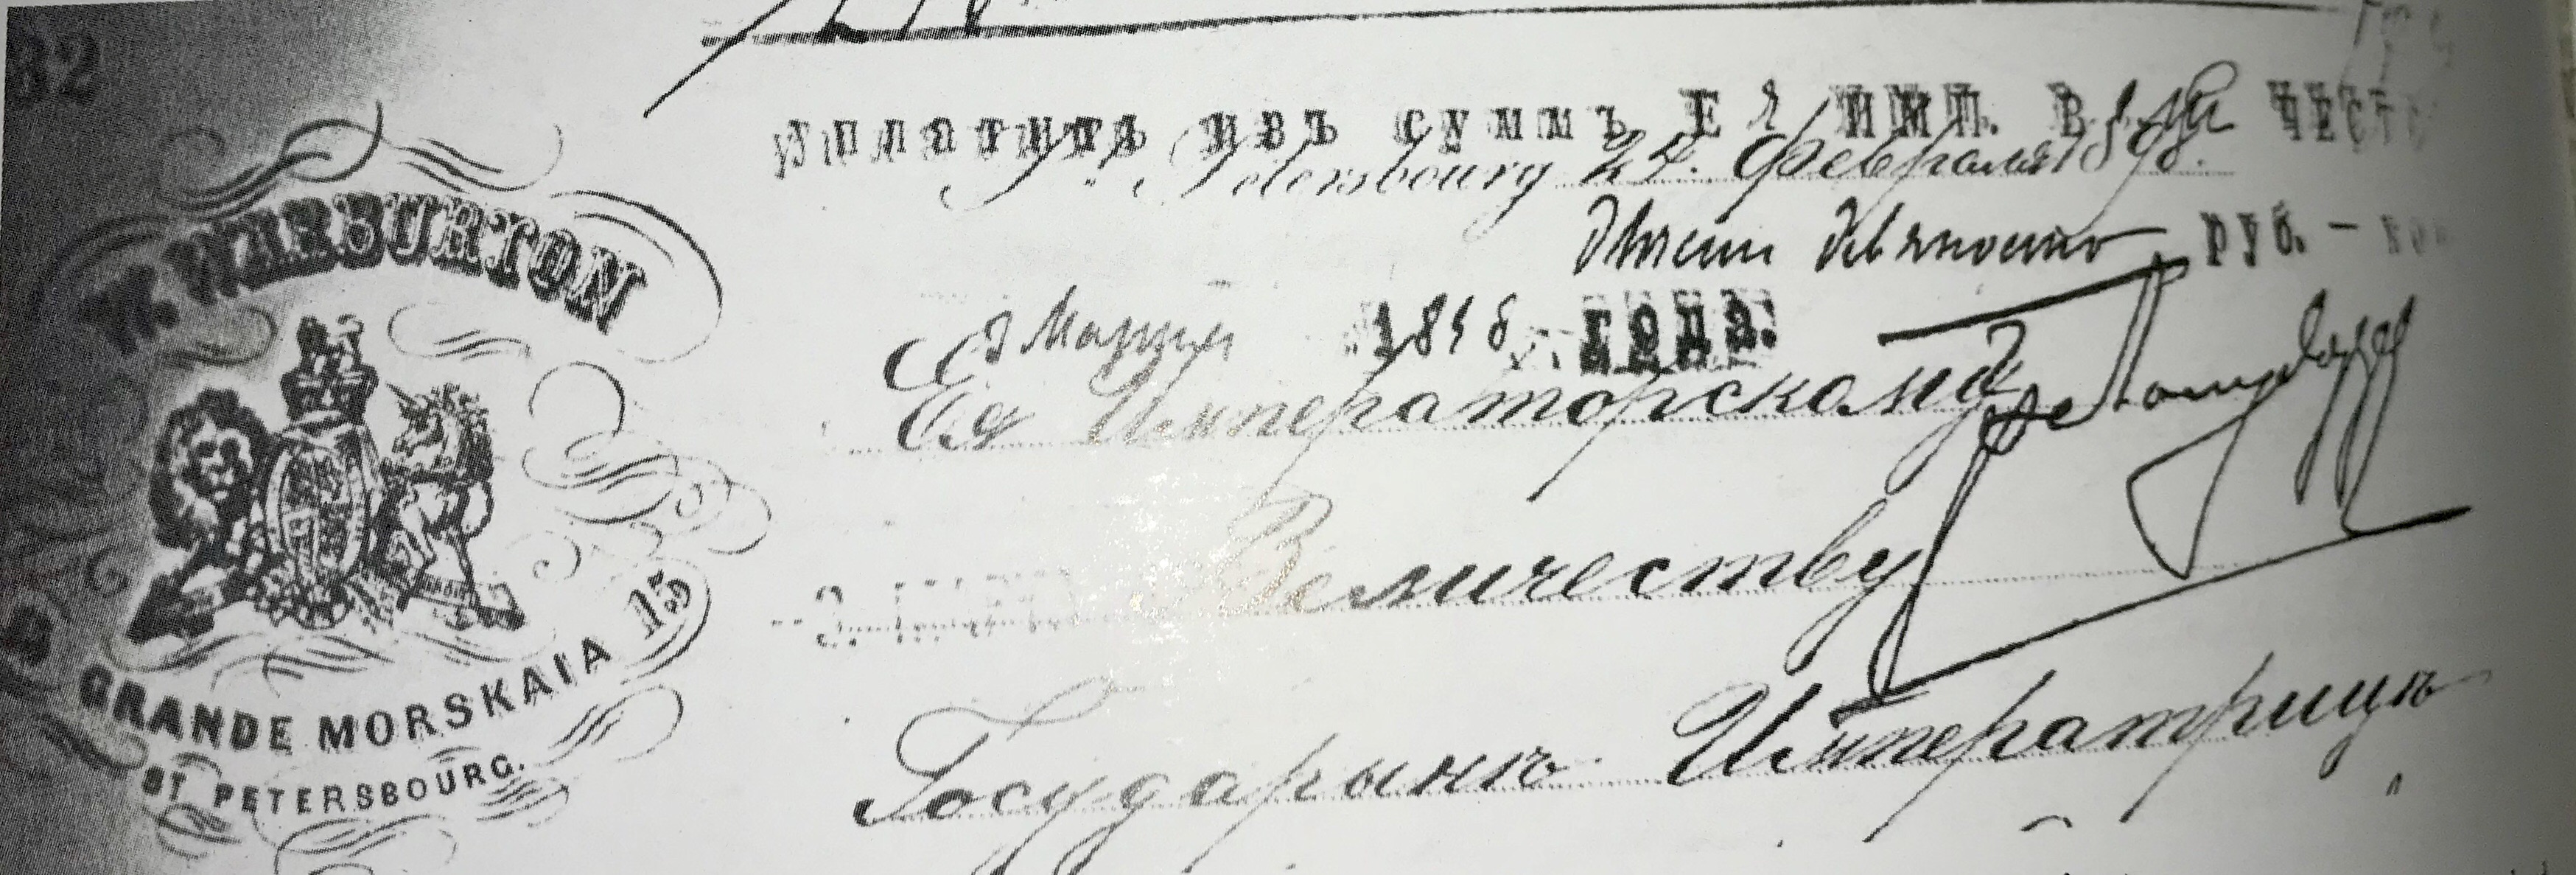 32
W. WARBURTON
GRANDE MORSKAIA 15
ST PETERSBOURG.
Уплатить изъ суммъ ЕЯ ИМП. ВЕЛИЧЕСТ
St. Petersbourg 24. Февраля 1898.
Двѣсти девяносто руб. —
Марта 1898 года.
Ея Императорскому
Величеству
Государынѣ Императрицѣ